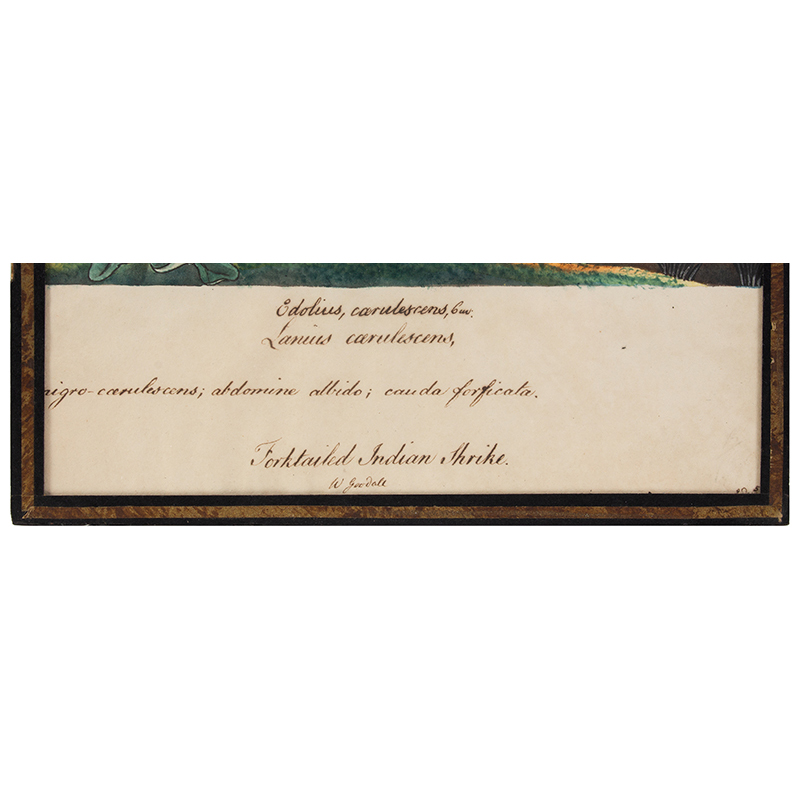 Edolius, cœrulescens, Cuv.
Lanius cœrulescens,
nigro-cœrulescens; abdomine albido; cauda forficata.
Forktailed Indian Shrike.
W Goodall